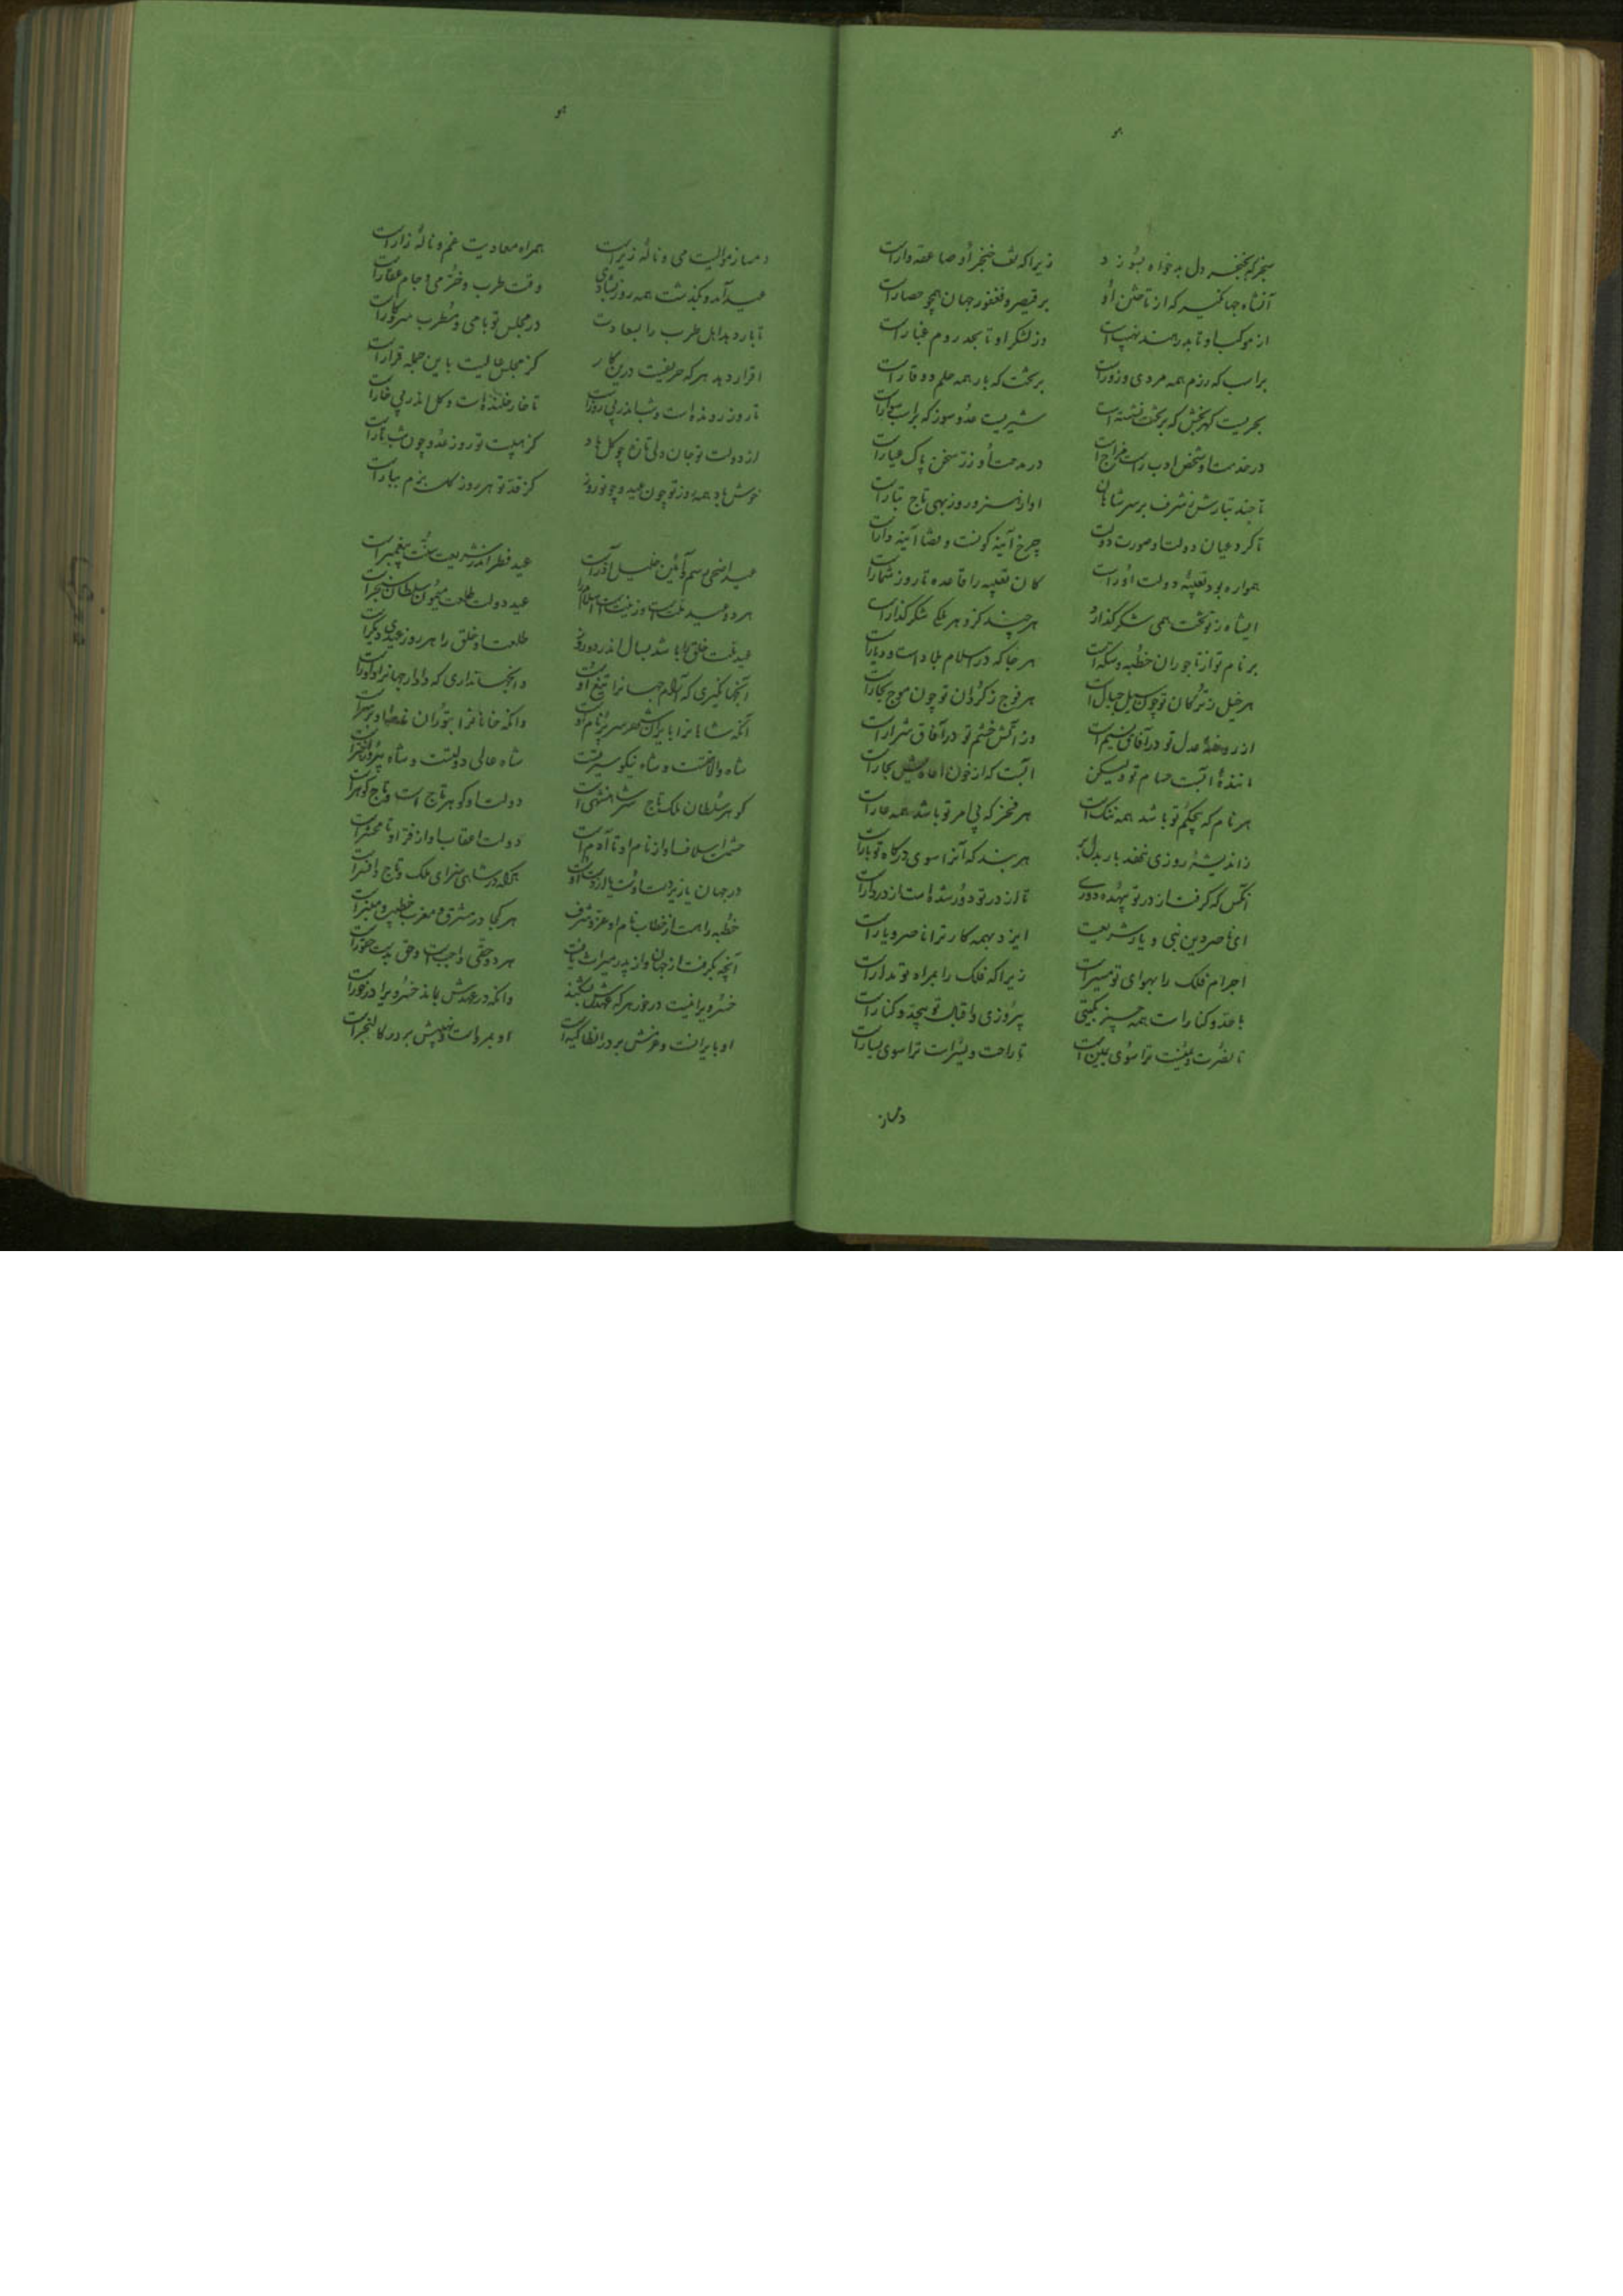 هو
سنجر که بخنجر دل بدخواه بسوزد زیرا که تف خنجر او صاعقه وارا است
آنشاه جهانگیر که از تاختن او بر قیصر و فغفور جهان همچو حصار است
از موکب او تا بدر هند نهیب است وز لشکر او تا بحد روم غبار است
بر اسب که رزم همه مردی و زور است بر تخت که بار همه حلم و وقار است
بحریست گهربخش که بر تخت نشسته است شیریست عدوسوز که بر اسب سوار است
در خدمت او شخص ادب راست مزاج است در مدحت او زر سخن پاک عیار است
تا چند تبارش ز شرف بر سر شاهان او از هنر و روز بهی تاج تبار است
تا کرد عیان دولت او صورت دولت چرخ آینه گونست و قضا آینه دار است
همواره بود تعبیه دولت او راست کان تعبیه را قاعده تا روز شمار است
ایشاه ز تو تخت همی شکر گذارد هر چند کزو هر ملکی شکر گذار است
بر نام تو از تاجوران خطبه و سکه است هر جا که در اسلام بلاد است و دیار است
هر خیل ز ترکان تو چون سیل جبال است هر فوج ز کردان تو چون موج بحار است
از روضهٔ عدل تو در آفاق نسیم است وز آتش خشم تو در آفاق شرار است
مانندهٔ آبست حسام تو ولیکن آبست که از خون اعادیش بخار است
هر نام که بیحکم تو باشد همه ننگ است هر فخر که بی امر تو باشد همه عار است
ز اندیشهٔ روزی نهند بار بدل بر هر بنده که آنرا سوی درگاه تو بار است
آنکس که گرفت از در تو بیهده دوری تا از در تو دور شده است از در دار است
ای ناصر دین نبی و یار شریعت ایزد بهمه کار ترا ناصر و یار است
اجرام فلک را بهوای تو مسیر است زیرا که فلک را بمراد تو مدار است
با عقد و کنار است همه چیز بگیتی پیروزی و اقبال تو بیحد و کنار است
تا نصرت و یمنست ترا سوی یمین است تا راحت و یسرات ترا سوی یسار است
دمساز
هو
دمساز موالیت می و نالهٔ زیر است همراه معادیت غم و نالهٔ زار است
عید آمد و بگذشت همه روز بشادی وقت طرب و خرمی و جام عقار است
تا بار دهد اهل طرب را بسعادت در مجلس تو با می و مطرب سر و کار است
اقرار دهد هر که حریفیت درین کار کز مجلس عالیت باین جمله قرار است
تا روز رونده است و شب اندر پی روز است تا خار خلنده است و گل اندر پی خار است
از دولت تو جان ولی تازه چو گل باد کز هیبت تو روز عدو چون شب تار است
خوش باد همه روز تو چون عید و چو نوروز کز قد تو هر روز گلستان بزم بهار است
عید اضحی رسم و آئین خلیل آذر است عید فطر اندر شریعت سنت پیغمبر است
هر دو عید ملت است و زینت است اسلام را عید دولت طلعت میمون سلطان سنجر است
عید ملت خلق را باشد بسال اندر دو روز طلعت او خلق را هر روز عیدی دیگر است
آنجهانگیری که آرام جهانرا تیغ اوست وانجهانداری که دادار جهانرا داور است
آنکه شاهانرا بایران شهر سر بر نام اوست وانکه خانانرا بتوران خط او بر سر است
شاه والا همت و شاه نیکو سیرتست شاه عالی دولتست و شاه پیروز اختر است
گوهر سلطان ملک تاج شرف شاهنشهی است دولت او گوهر تاج است و تاج گوهر است
حشمت اسلاف او از نام او تا آدم است دولت اعقاب او از فر او تا محشر است
خطبه را هست از خطاب نام او عز و شرف هر کجا در مشرق و مغرب خطیب و منبر است
آنچه بگرفت از جهان او از پدر میراث یافت هر دو حقی واجب است و حق بدست حقور است
خسرویرا نیست در خور هر که عهدش بشکند وانکه در عهدش بماند خسرویرا در خور است
او بایرانست و عزمش بر در انطاکیه است او بمرو است و نهیبش بر در کالنجر است